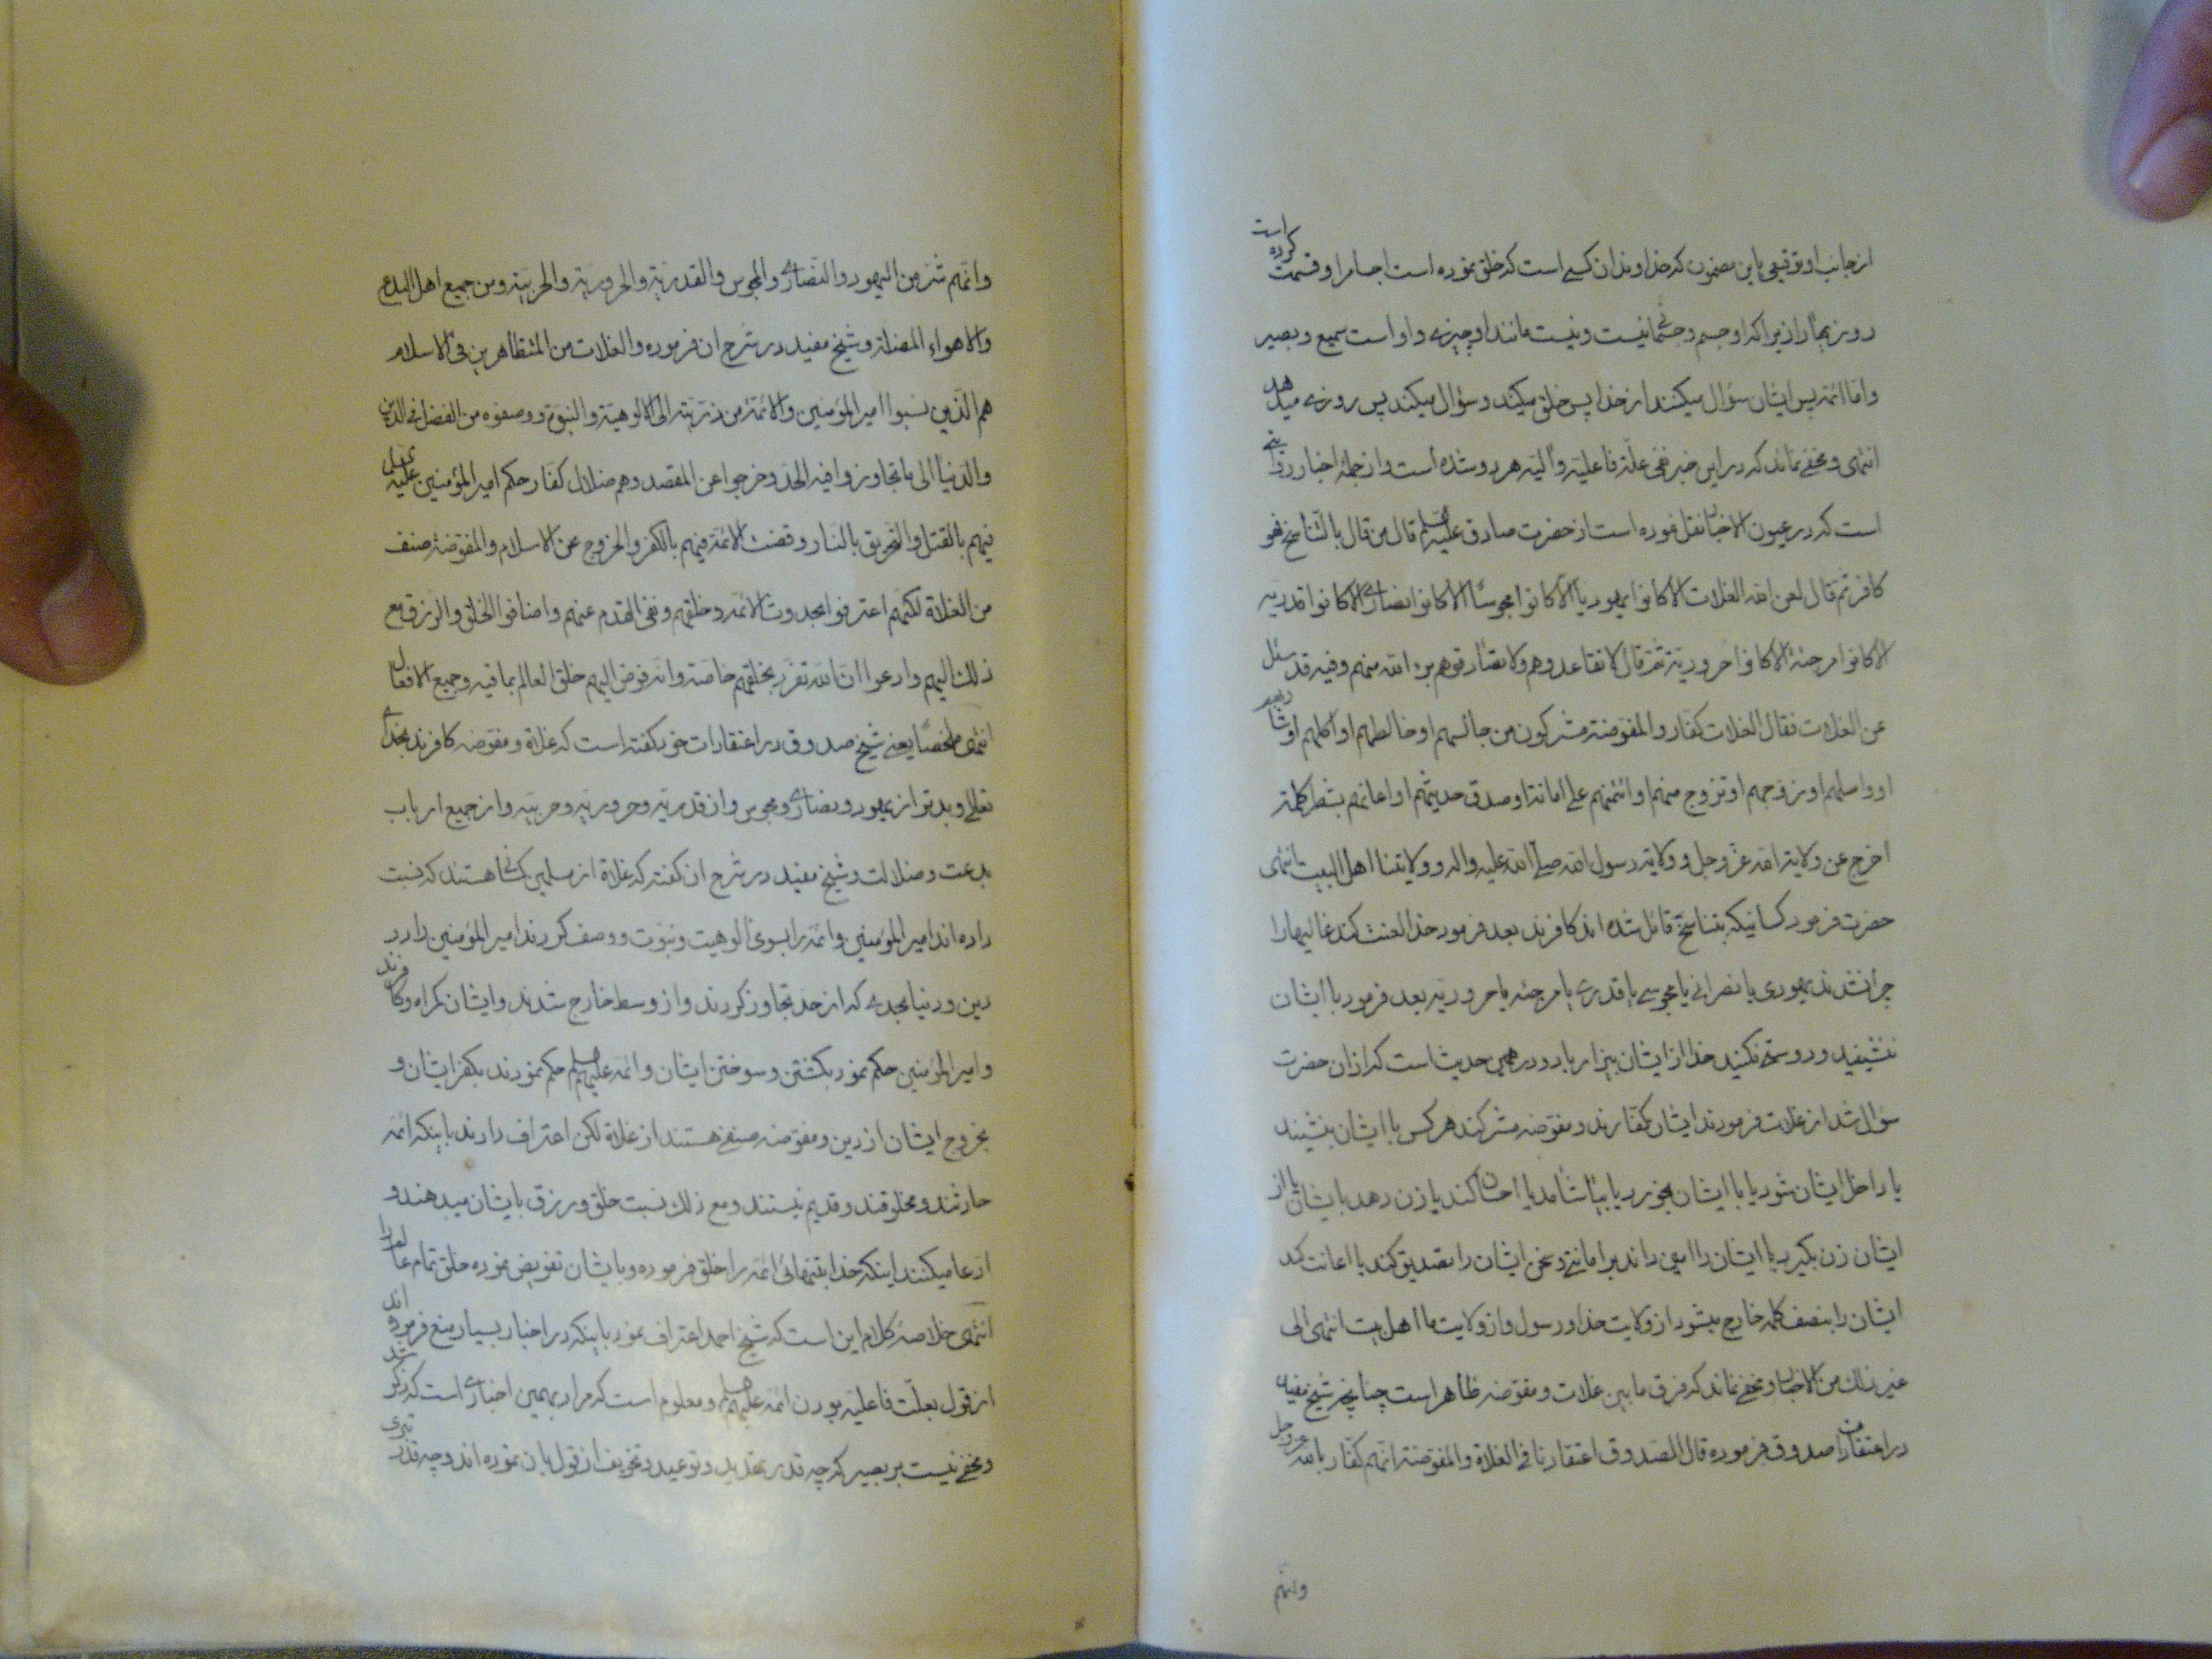 از جانب او توقیعی باین مضمون که خداوند ان کسی است که خلق نموده است اجسام را و قسمت کرده است
روزیها را زیرا که او جسم و جسمانی نیست و نیست مانند او چیزی و او است سمیع و بصیر
و اما ائمه پس ایشان سؤال میکنند از خدا پس خلق میکند و سؤال میکنند پس روزی میدهد
انتهی و مخفی نماند که در این خبر نفی علة فاعلیه و الیه هر دو شده است و از جملهٔ اخبار روایتی
است که در عیون الاخبار نقل فموده است از حضرت صادق علیه السلم قال من قال بالتناسخ فهو
کافر ثم قال لعن الله الغلات الا کانوا یهودیا الا کانوا مجوسا الا کانوا نصاری الا کانوا قدریه
الا کانوا مرجئة الا کانوا حروریة ثم قال لا تقاعدوهم ولا تصادقوهم برء الله منهم و فیه قد سئل
عن الغلات فقال الغلات کفار و المفوضة مشرکون من جالسهم او خالطهم او اکلهم او شاربهم
او واصلهم او زوجهم او تزوج منهم او ائتمنهم علی امانة او صدق حدیثهم او اعانهم بشطر کلمة
اخرج عن ولایة الله عز و جل و ولایة رسول الله صلی الله علیه و اله و ولایتنا اهل البیت انتهی
حضرت فرمود کسانیکه بتناسخ قائل شده اند کافرند بعد فرمود خدا لعنت کند غالیها را
چرا نشدند یهودی یا نصرانی یا مجوسی یا قدری یا مرجئه یا حروریه بعد فرمود با ایشان
ننشینید و دوستی نکنید خدا از ایشان بیزار باد و در همین حدیث است که از ان حضرت
سؤال شد از غلات فرمودند ایشان کفارند و مفوضه مشرکند هر کس با ایشان بنشیند
یا داخل ایشان شود یا با ایشان بخورد یا بیاشامد یا احسان کند یا زن دهد بایشان یا از
ایشان زن بگیرد یا ایشان را امین داند بر امانتی و سخن ایشان را تصدیق کند یا اعانت کند
ایشان را بنصف کلمه خارج میشود از ولایت خدا و رسول و از ولایت ما اهل بیت انتهی الی
غیر ذلک من الاخبار و مخفی نماند که فرق ما بین غلات و مفوضه ظاهر است چنانچه شیخ مفید
در اعتقادات صدوق فرموده قال الصدوق اعتقادنا فی الغلاة و المفوضة انهم کفار بالله عز و جل
وانهم
وانهم شر من الیهود و النصاری و المجوس و القدریة و الحروریة و الحربیة و من جمیع اهل البدع
و الاهواء المضلة و شیخ مفید در شرح ان فرموده و الغلات من المتظاهرین فی الاسلام
هم الذین نسبوا امیر المؤمنین و الائمة من ذریته الی الالوهیة و النبوة و وصفوه من الفضل فی الدین
و الدنیا الی ما تجاوزوا فیه الحد و خرجوا عن المقصد و هم ضلال کفار حکم امیر المؤمنین علیه السلم
فیهم بالقتل و التحریق بالنار و قضت الائمة فیهم بالکفر و الخروج عن الاسلام و المفوضة صنف
من الغلاة لکنهم اعترفوا بحدوث الائمة و خلقهم و نفی القدم عنهم و اضافوا الخلق و الرزق مع
ذلک الیهم و ادعوا ان الله تفرد بخلقهم خاصة و انه فوض الیهم خلق العالم بما فیه و جمیع الافعال
انتهی ملخصا یعنی شیخ صدوق در اعتقادات خود گفته است که غلاة و مفوضه کافرند بخدای
تعالی و بدتر از یهود و نصاری و مجوس و از قدریه و حروریه و حربیه و از جمیع ارباب
بدعت و ضلالت و شیخ مفید در شرح ان گفته که غلاة از مسلمین کسانی هستند که نسبت
داده اند امیر المؤمنین و ائمه را بسوی الوهیت و نبوت و وصف کردند امیر المؤمنین را در
دین و دنیا بحدی که از حد تجاوز کردند و از وسط خارج شدند و ایشان گمراه و کافرند
و امیر المؤمنین حکم نمود بکشتن و سوختن ایشان و ائمه علیهم السلم حکم نمودند بکفر ایشان و
بخروج ایشان از دین و مفوضه صنفی هستند از غلاة لکن اعتراف دارند باینکه ائمه
حادثند و مخلوقند و قدیم نیستند و مع ذلک نسبت خلق و رزق بایشان میدهند و
ادعا میکنند اینکه خدا بتنهائی ائمه را خلق فرموده و بایشان تفویض نموده خلق تمام عالم را
انتهی خلاصهٔ کلام این است که شیخ احمد اعتراف نمود باینکه در اخبار بسیار منع فرموده اند
از قول بعلت فاعلیه بودن ائمه علیهم السلم و معلوم است که مراد بهمین اخباری است که ذکر شد
و مخفی نیست بر بصیر که چه قدر تهدید و توعید و تخویف از قول بان نموده اند و چه قدر تبری